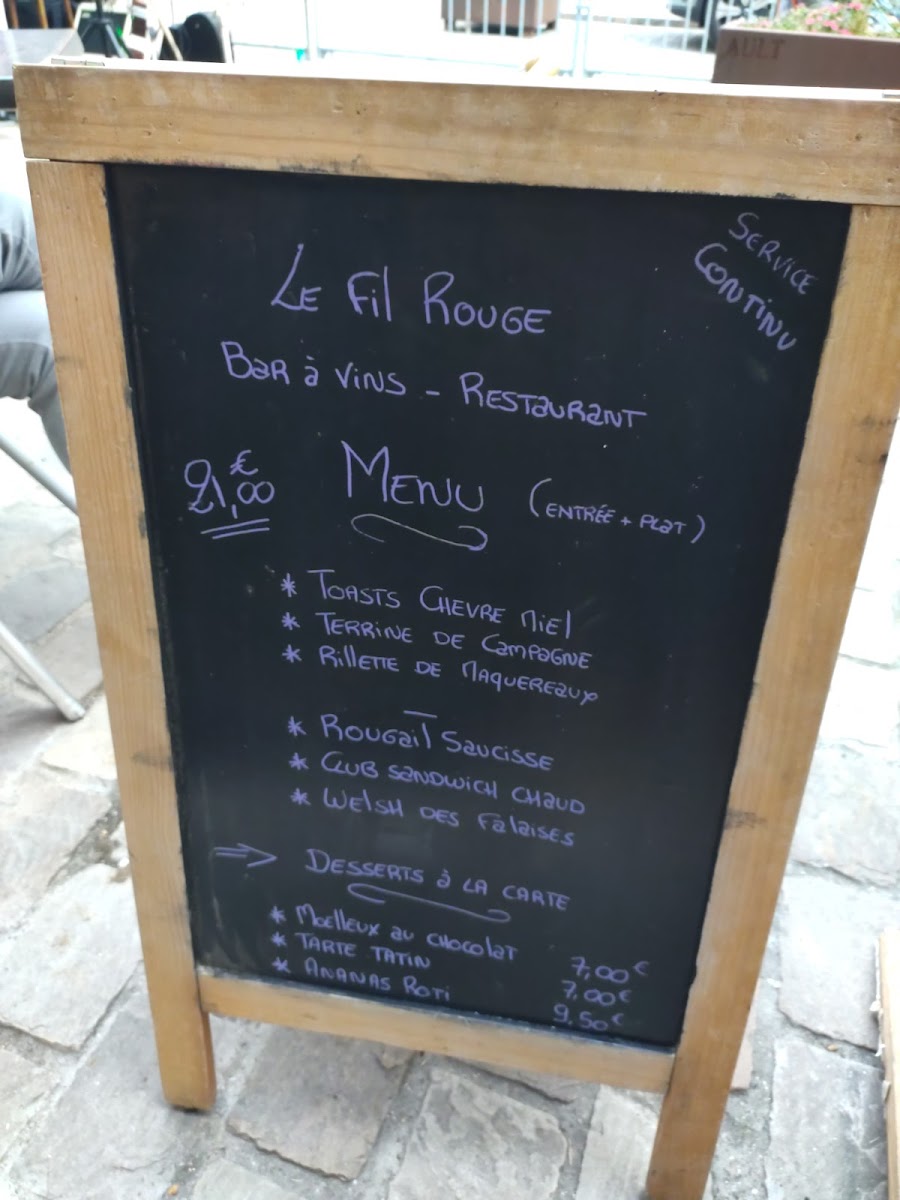 AULT
SERVICE
CONTINU
LE Fil ROUGE
BAR à VINS - RESTAURANT
21,00 € MENU (ENTRÉE + PLAT)
* TOASTS CHEVRE MIEL
* TERRINE DE CAMPAGNE
* RILLETTE DE MAQUEREAUX
—
* ROUGAIL SAUCISSE
* CLUB SANDWICH CHAUD
* WELSH DES FALAISES
⇒ DESSERTS à LA CARTE
* MOELLEUX AU CHOCOLAT 7,00 €
* TARTE TATIN 7,00 €
* ANANAS ROTI 9,50 €